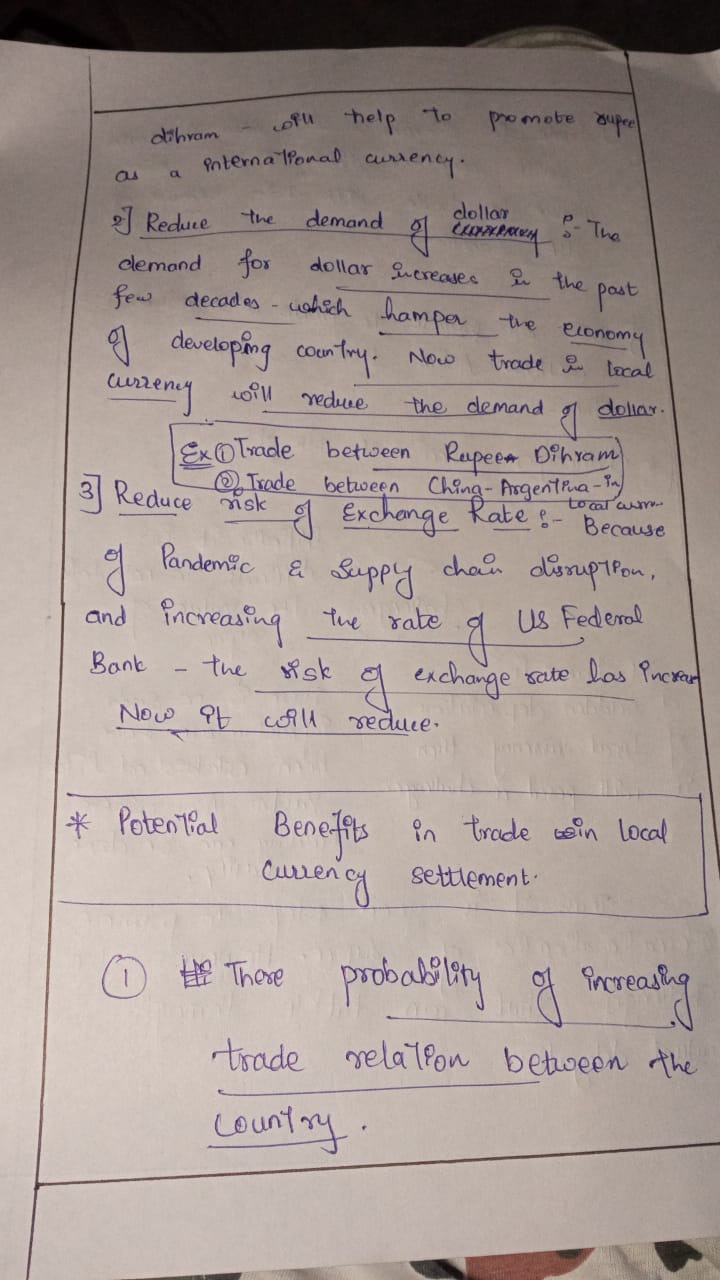 dihram - will help to promote rupee
as a international currency.
2] Reduce the demand of dollar :- The
demand for dollar increases in the past
few decades - which hamper the economy
of developing country. Now trade in local
currency will reduce the demand of dollar.
Ex ① Trade between Rupee Dihram
② Trade between China - Argentina - in
local curre
3] Reduce risk of Exchange Rate :- Because
of Pandemic & Supply chain disruption,
and increasing the rate of US Federal
Bank - the risk of exchange rate has increas
Now it will reduce.
* Potential Benefits in trade in local
currency settlement.
① There probability of increasing
trade relation between the
country.